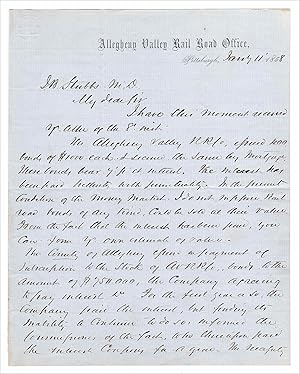 Allegheny Valley Rail Road Office,
Pittsburgh, Jany 11 1858
J B Stubbs M.D
My Dear Sir
I have this moment received
yr letter of the 8" inst.
The Allegheny Valley RR Co. issued 400
bonds of $1000 each & secured the same by Mortgage
These bonds bear 7 p ct interest. The interest has
been paid hitherto with punctuality. In the present
Condition of the Money Market I do not suppose Rail
road bonds of any kind Could be sold at their value
From the fact that the interest has been paid, you
Can form yr own estimate of value.
The County of Allegheny upon repayment of
Subscription to the Stock of AVRR Co. bonds to the
Amount of $750,000, the Company agreeing
to pay interest &c For the first year or so the
Company paid the interest, but finding its
inability to Continue to do so informed the
Commissioners of the fact, who thereupon paid
the interest Company for a year. The necessity